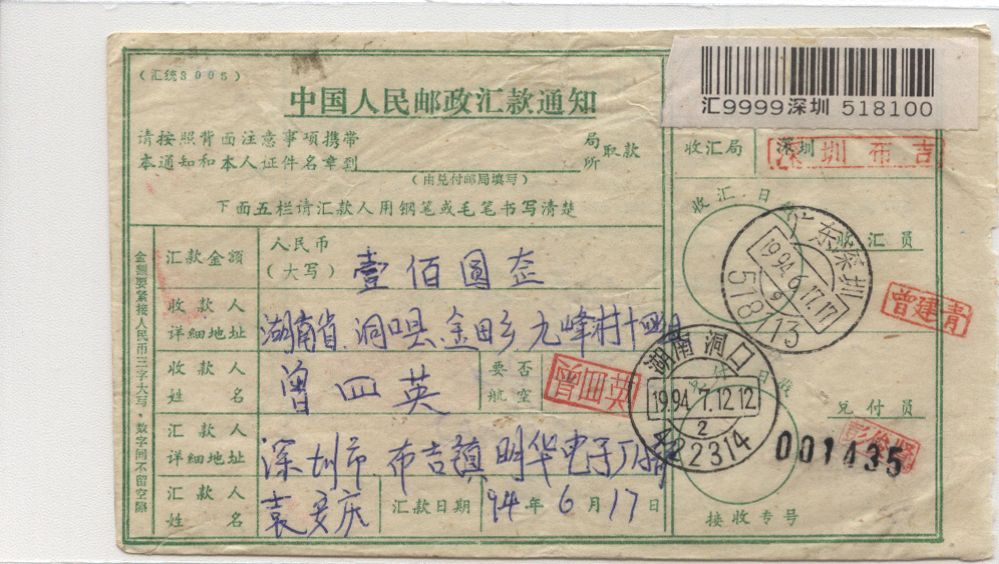 (汇统3005)
中国人民邮政汇款通知
汇9999深圳 518100
请按照背面注意事项携带
本通知和本人证件名章到 局所 取款
(由兑付邮局填写)
下面五栏请汇款人用钢笔或毛笔书写清楚
金额要紧接人民币三字大写,数字间不留空隙
汇款金额 人民币(大写) 壹佰圆
收款人详细地址 湖南省.洞口县.金田乡 九峰村十四组
收款人姓名 曾四英 要否航空
汇款人详细地址 深圳市.布吉镇 明华电子
汇款人姓名 袁彦庆 汇款日期 94年6月17日
收汇局 深圳
深圳布吉
收汇日戳
收汇员
广东深圳
1994.6.17.17
9
518113
曾建青
湖南洞口
1994.7.12.12
2
422314
兑付日戳
兑付员
001435
接收专号